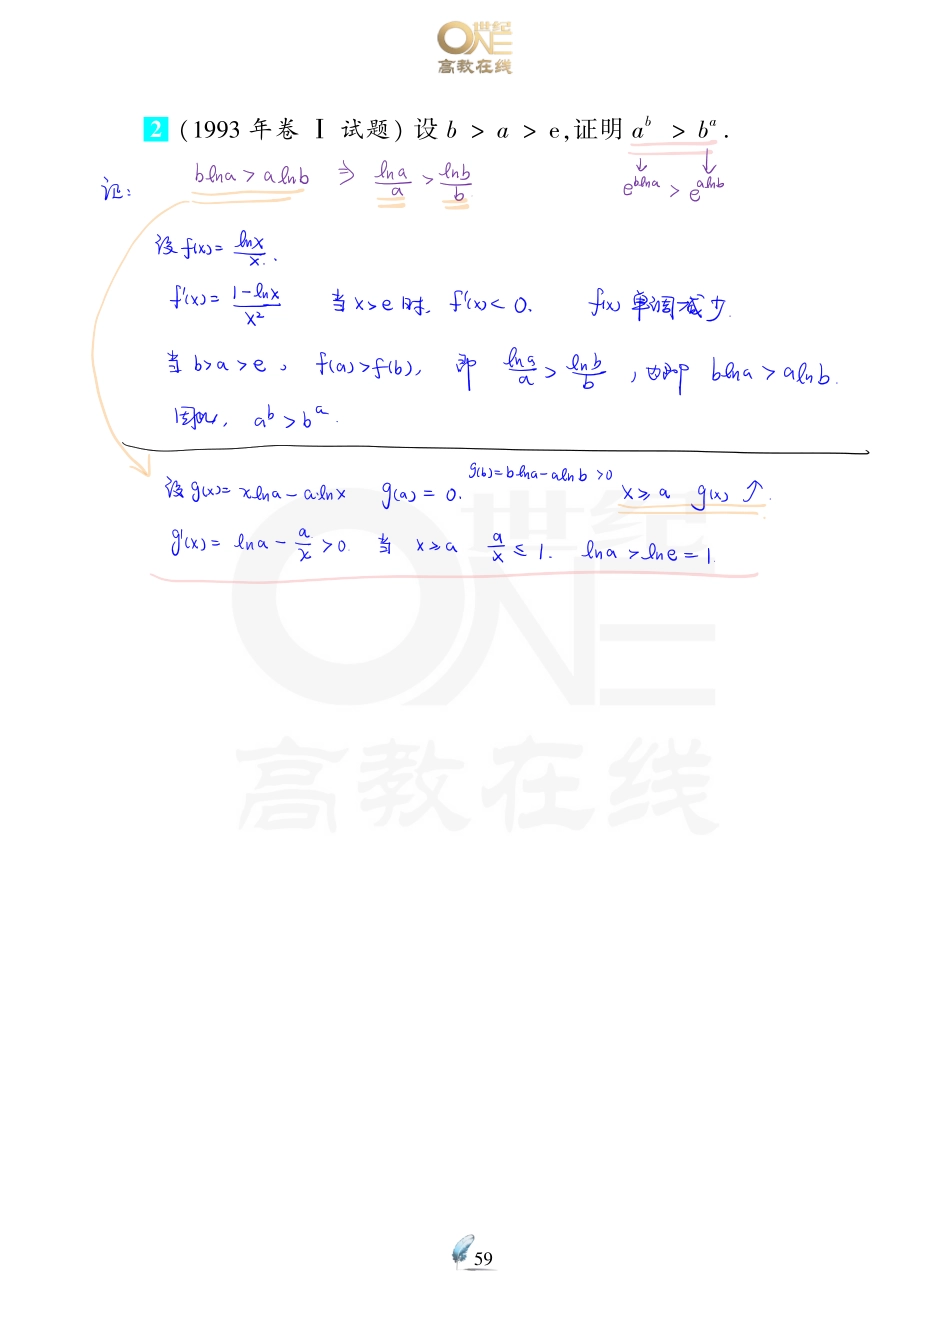 世纪
ONE
高教在线
2 (1993 年卷 Ⅰ 试题) 设 b > a > e,证明 a^b > b^a .
证: blna > alnb ⇒ lna/a > lnb/b
e^{blna} > e^{alnb}
设 f(x) = lnx/x .
f'(x) = (1-lnx)/x² 当 x>e 时, f'(x) < 0. f(x) 单调减少.
当 b>a>e , f(a)>f(b), 即 lna/a > lnb/b , 也即 blna > alnb .
因此, a^b > b^a .
g(b) = blna - alnb > 0
设 g(x) = xlna - a·lnx g(a) = 0. x ≥ a g(x) ↑ .
g'(x) = lna - a/x > 0. 当 x ≥ a a/x ≤ 1. lna > lne = 1.
世纪
ONE
高教在线
59